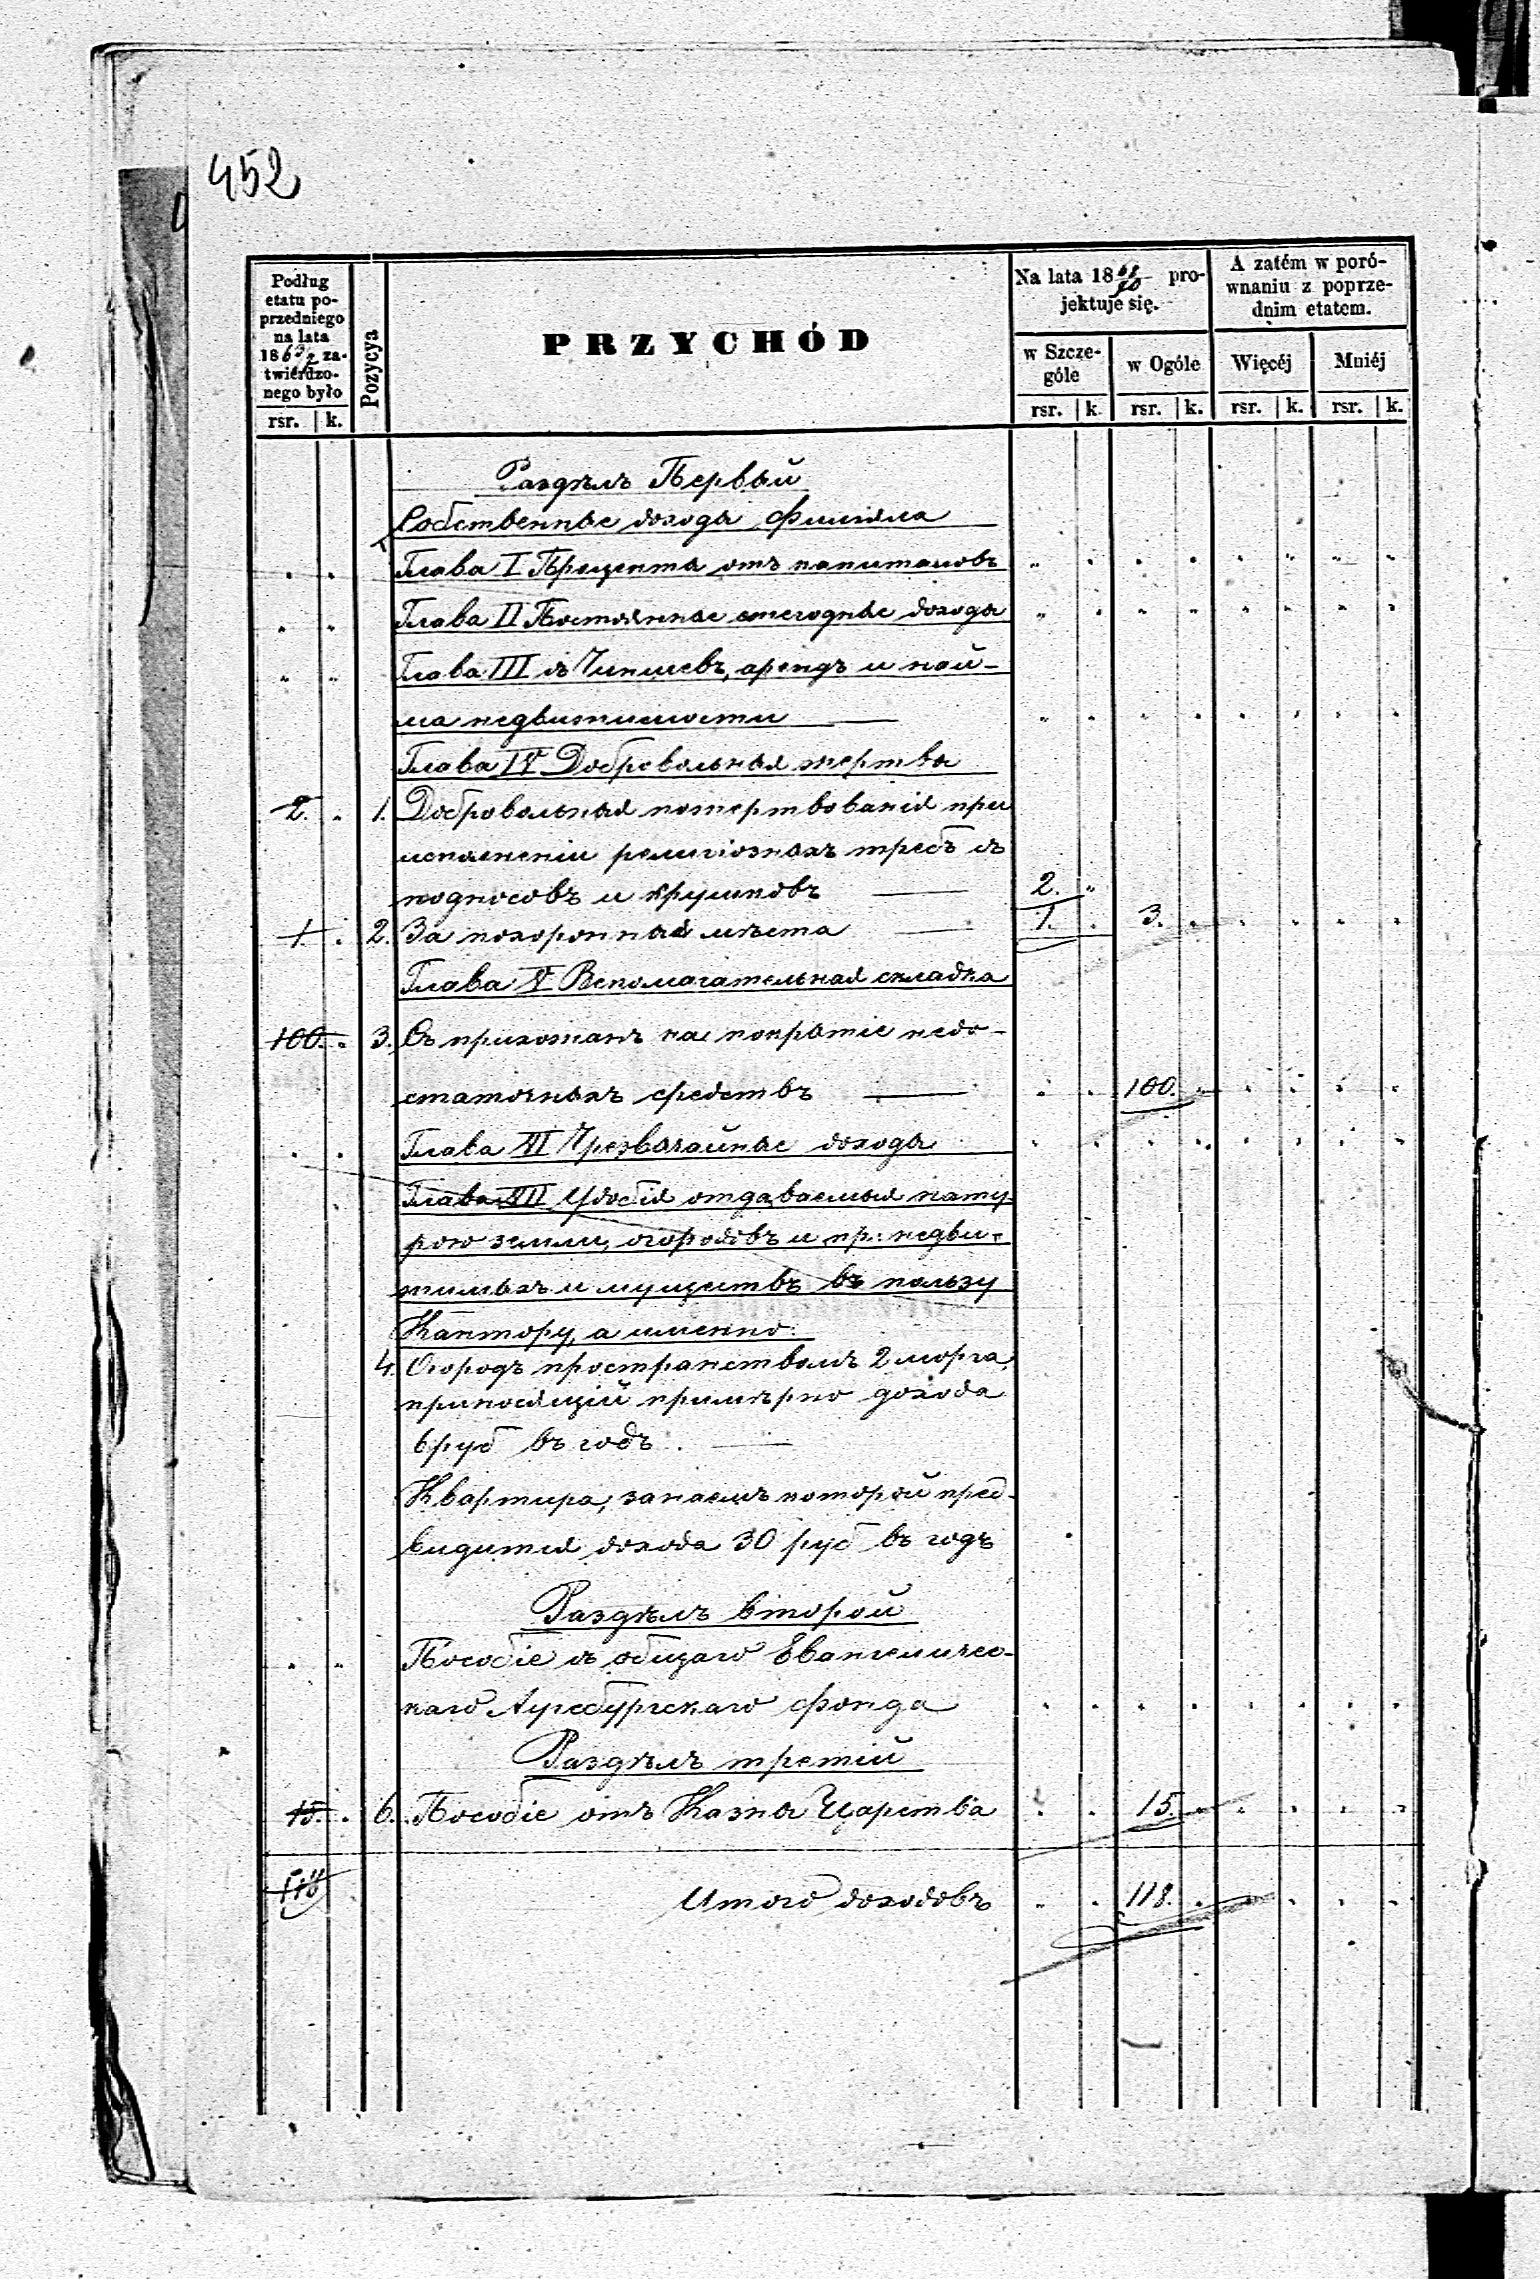 452
Podług
etatu po-
przedniego
na lata
1863/7 za-
twierdzo-
nego było
Pozycya
PRZYCHÓD
Na lata 1868/70 pro-
jektuje się.
A zatém w poró-
wnaniu z poprze-
dnim etatem.
w Szcze-
góle
w Ogóle
Więcéj
Mniéj
rsr. k. rsr. k. rsr. k. rsr. k. rsr. k.
Раздѣлъ Первый
Собственные доходы филіяла
Глава I Проценты отъ капиталовъ
Глава II Постоянные ежегодные доходы
Глава III съ Чиншевъ, арендъ и най-
ма недвижимости
Глава IV Добровольныя жертвы
2. 1. Добровольныя пожертвованія при
исполненіи религіозныхъ требъ съ
подносовъ и кружковъ 2.
1. 2. За похоронныя мѣста 1. 3.
Глава V Вспомагательная складка
100. 3. Съ прихожанъ на покрытіе недо-
статочныхъ средствъ 100.
Глава VI Чрезвычайные доходы
Глава VII Удобія отдаваемыя нату-
рою земли, огородовъ и пр: недви-
жимыхъ имуществъ въ пользу
Кантору, а именно:
4. Огородъ пространствомъ 2 морга,
приносящій примѣрно дохода
6 руб въ годъ.
Квартира, занаемъ которой пред-
видится дохода 30 руб въ годъ
Раздѣлъ второй
Пособіе съ общаго Евангеличес-
каго Аугсбургскаго фонда
Раздѣлъ третій
15. 6. Пособіе отъ Казны Царства 15.
118 Итого доходовъ 118.